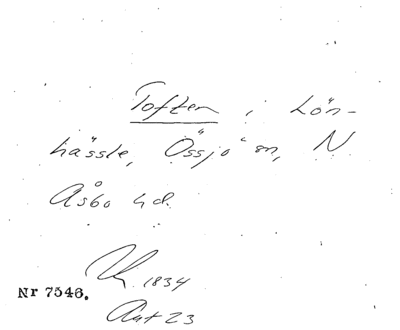 Toften i Lön-
hässle, Össjö sn, N
Åsbo hd.
1834
Nr 7546.
Akt 23